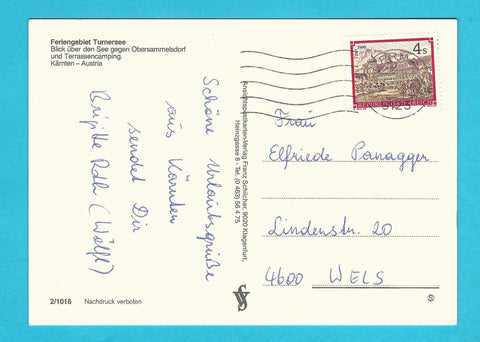 Feriengebiet Turnersee
Blick über den See gegen Obersammelsdorf
und Terrassencamping.
Kärnten – Austria
Schöne Urlaubsgrüße
aus Kärnten
sendet Dir
Brigitte Roth (Wölfl)
2/1016 Nachdruck verboten
Ansichtspostkarten-Verlag Franz Schilcher, 9020 Klagenfurt,
Heinzgasse 8 - Tel. (0 463) 56 4 75
4 S
REPUBLIK ÖSTERREICH
Frau
Elfriede Panagger
Lindenstr. 20
4600 WELS